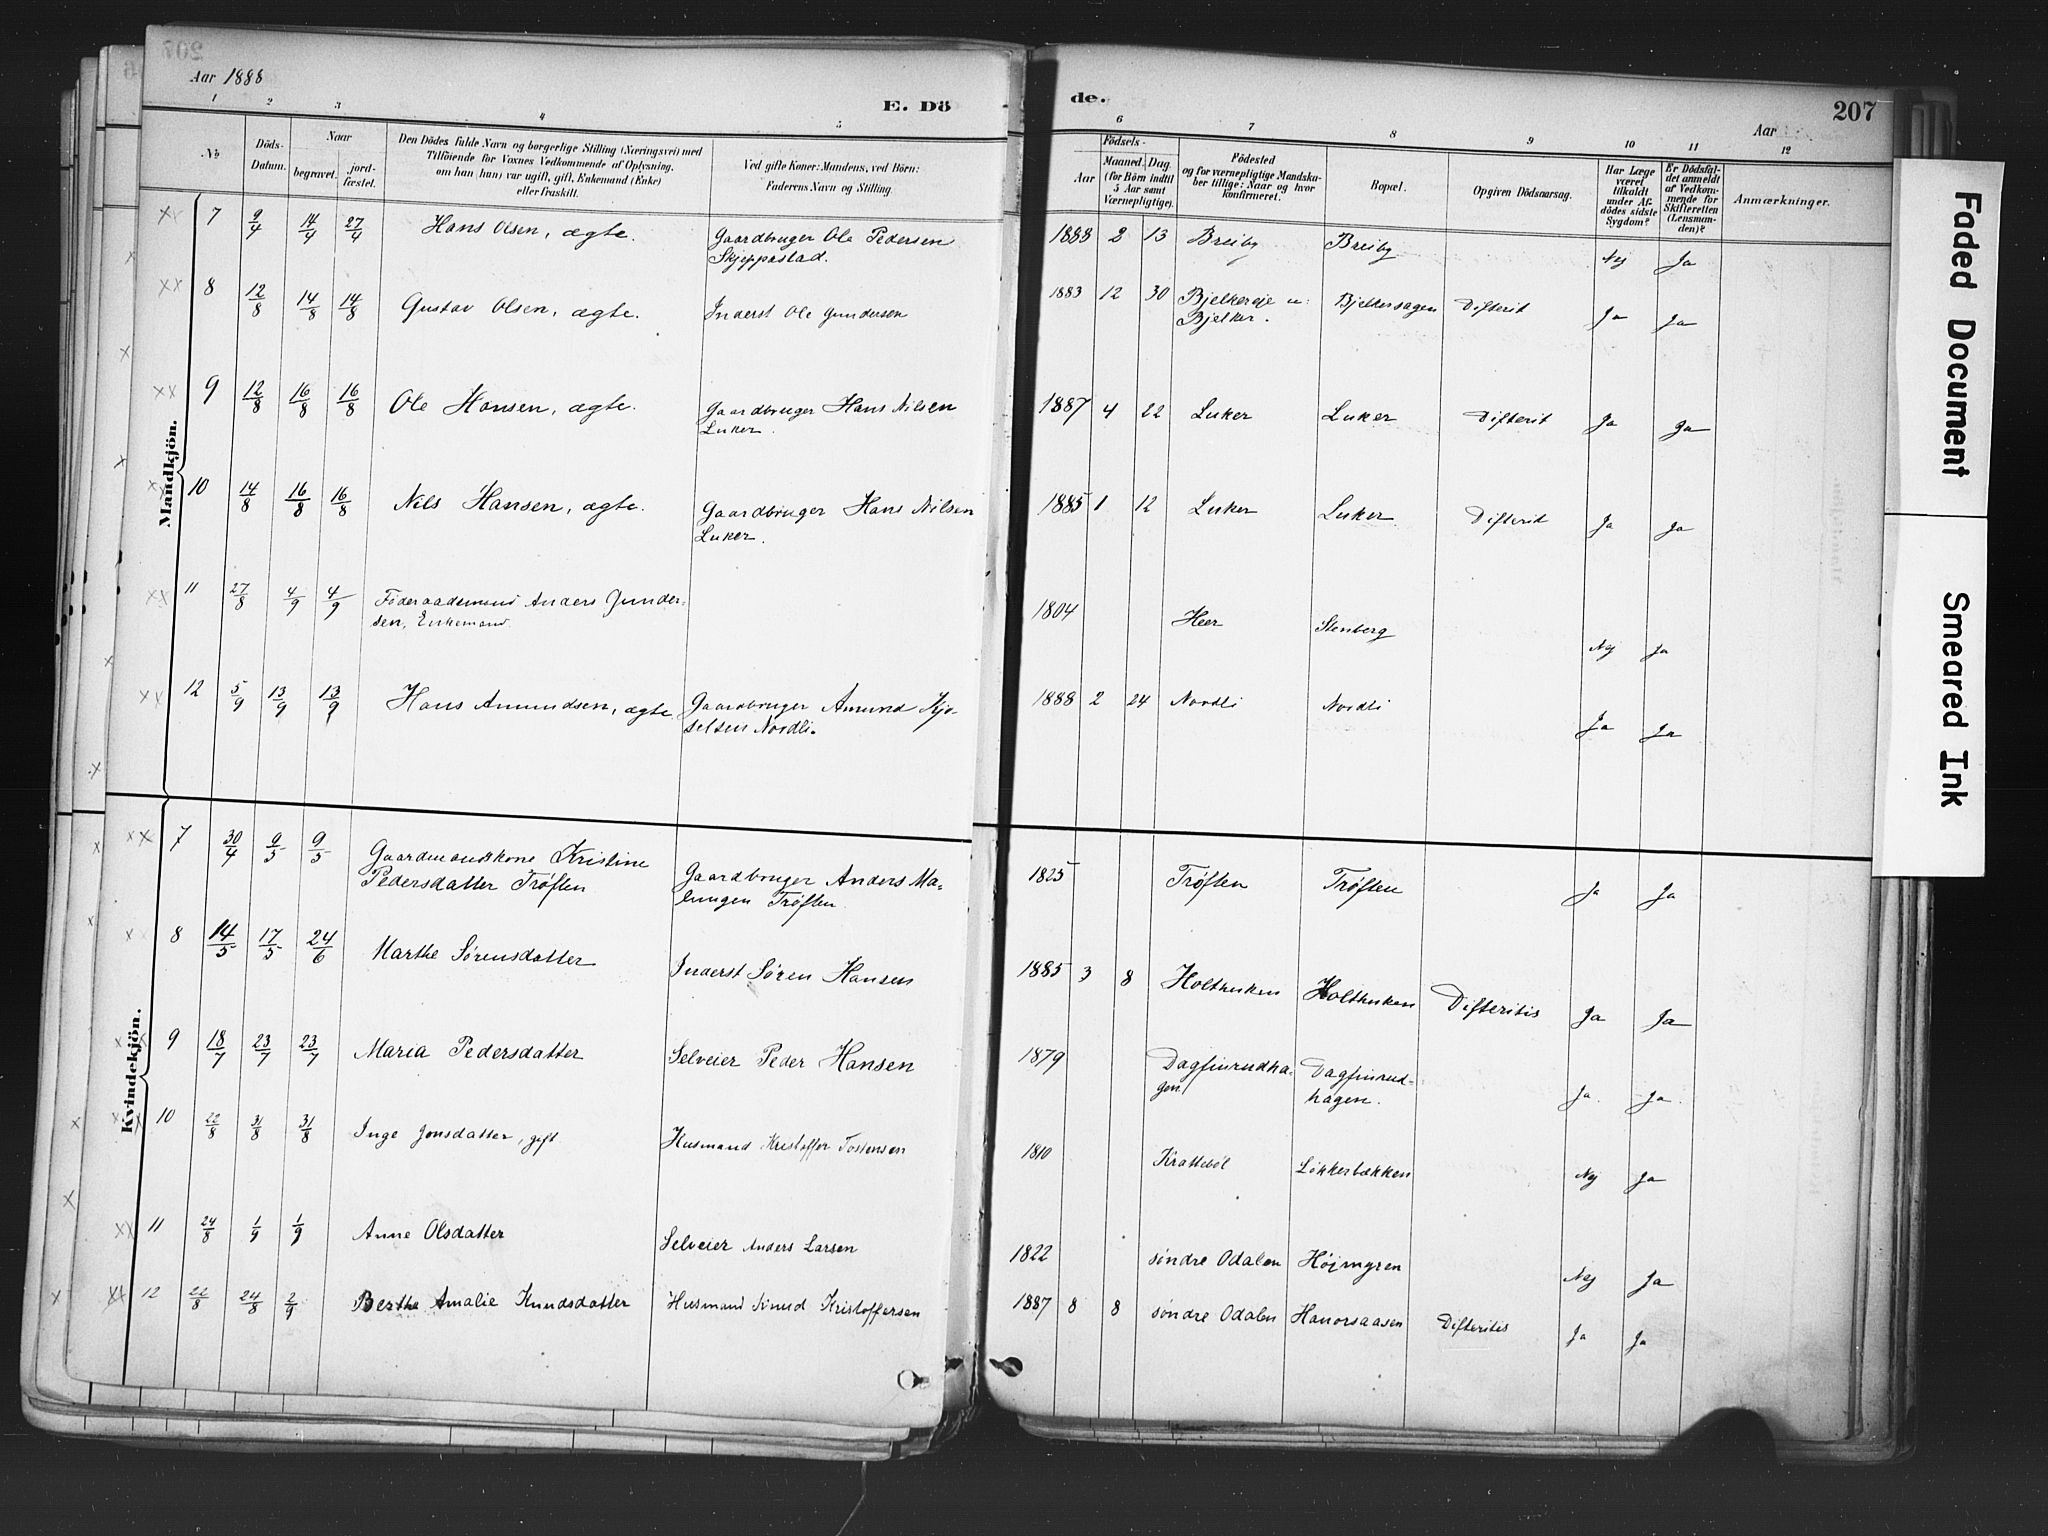 Aar 1888
E. Dö
de.
Aar
207
1 2 3 4 5 6 7 8 9 10 11 12
No
Döds-Datum.
Naar
begravet.
jord-fæstet.
Den Dödes fulde Navn og borgerlige Stilling (Næringsvei) med
Tilföiende for Voxnes Vedkommende af Oplysning,
om han (hun) var ugift, gift, Enkemand (Enke)
eller fraskilt.
Ved gifte Koner: Mandens, ved Börn:
Faderens Navn og Stilling.
Födsels-
Aar
Maaned. Dag.
(for Börn indtil
5 Aar samt
Værnepligtige).
Födested
og for værnepligtige Mandsku-
ber tillige: Naar og hvor
konfirmeret.
Bopæl.
Opgiven Dödsaarsag.
Har Læge
været
tilkaldt
under Af-
dödes sidste
Sygdom?
Er Dödsful-
det anmeldt
af Vedkom-
mende for
Skifteretten
(Lensman-
den)?
Anmærkninger.
Mandkjön.
7 9/4 14/4 27/4 Hans Olsen, ægte. Gaardbruger Ole Pedersen 1888 2 13 Breiby Breiby Nej Ja
Skjeppestad.
8 12/8 14/8 14/8 Gustav Olsen, ægte. Inderst Ole Gundersen 1883 12 30 Bjelkereje u: Bjelkersagen Difterit Ja Ja
Bjelker.
9 12/8 16/8 16/8 Ole Hansen, ægte. Gaardbruger Hans Nilsen 1887 4 22 Luker Luker Difterit Ja Ja
Luker.
10 14/8 16/8 16/8 Nils Hansen, ægte. Gaardbruger Hans Nilsen 1885 1 12 Luker Luker Difterid Ja Ja
Luker.
11 27/8 4/9 4/9 Föderaadsmand Anders Gunder- 1804 Heer Stenberg Nej Ja
sen, Enkemand.
12 5/9 13/9 13/9 Hans Amundsen, ægte Gaardbruger Amund Kjo- 1888 2 24 Nordli Nordli Ja Ja
selsen Nordli.
Kvindekjön.
7 30/4 9/5 9/5 Gaardmandskone Kristine Gaardbruger Anders Ma- 1825 Trøften Trøften Ja Ja
Pedersdatter Trøften lungen Trøften.
8 14/5 17/5 24/6 Marthe Sørensdatter Inderst Søren Hansen 1885 3 8 Holthusken Holthusken Difteritis Ja Ja
9 18/7 23/7 23/7 Maria Pedersdatter Selveier Peder Hansen 1879 Dagfinrudha- Dagfinrud- Ja. Ja.
gen hagen.
10 22/8 31/8 31/8 Inge Jonsdatter, gift. Husmand Kristoffer Tostensen 1810 Krattebøl Løkkerbækken Nej Ja
11 24/8 1/9 1/9 Anne Olsdatter Selveier Anders Larsen 1822 søndre Odalen Højmyren Nej Ja
12 22/8 24/8 2/9 Berthe Amalie Knudsdatter Husmand Knud Kristoffersen 1887 8 8 søndre Odalen Hanorsaasen Difteritis Ja Ja
Faded Document
Smeared Ink